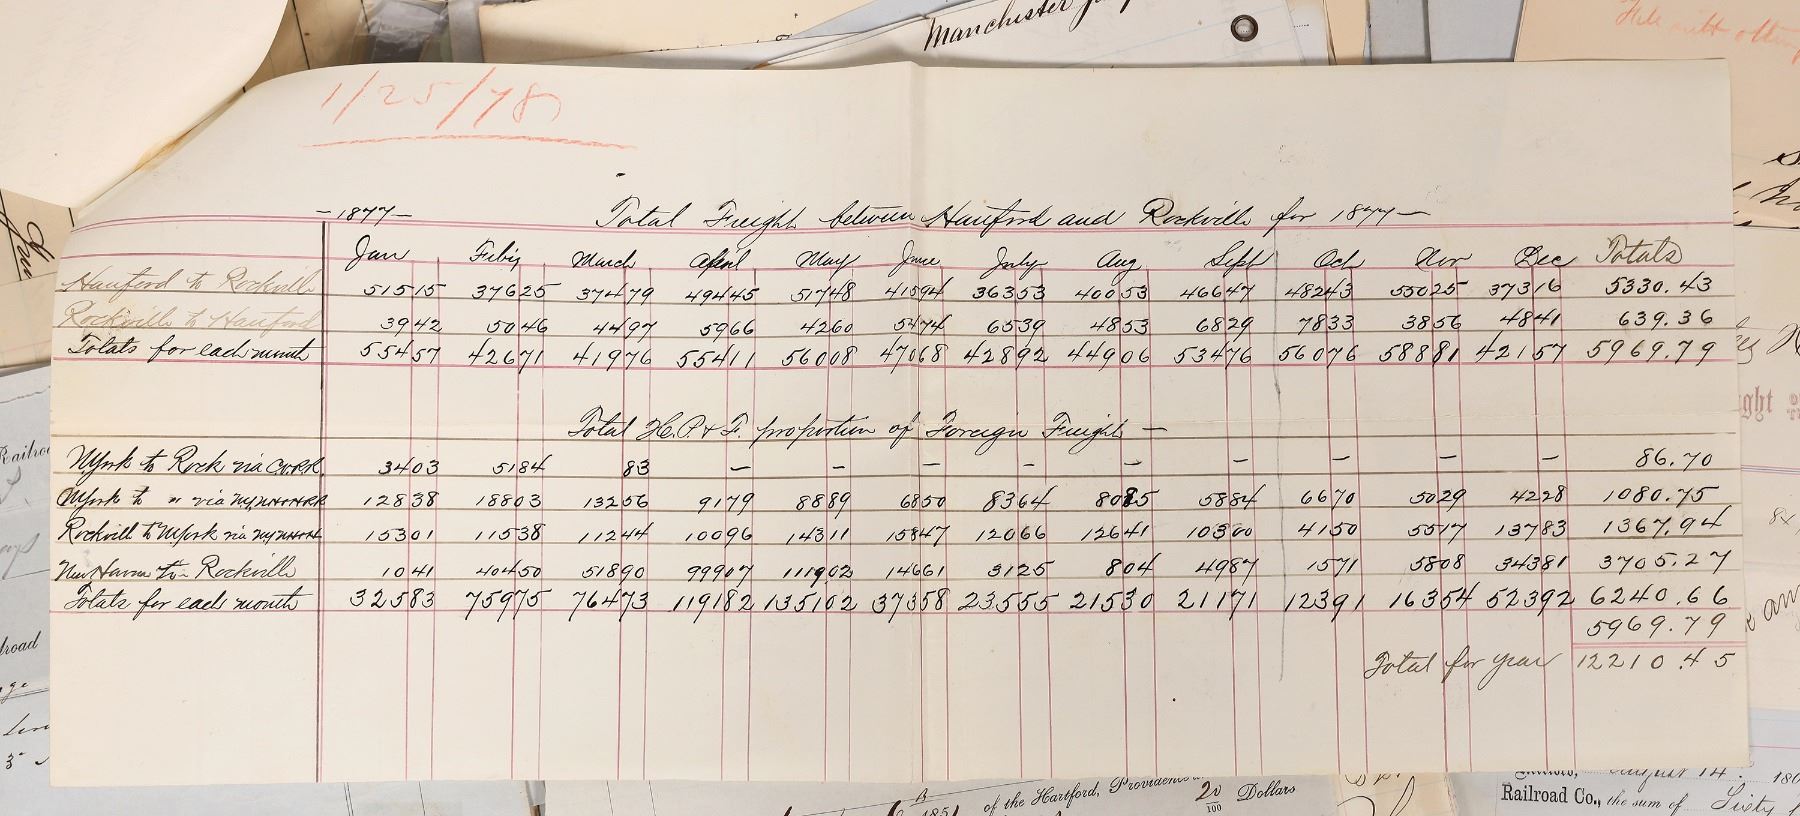 Manchester
1/25/78
-1877- Total Freight between Hartford and Rockville for 1877-
Jan Feby March April May June July Aug Sept Oct Nov Dec Totals
Hartford to Rockville 51515 37625 37479 49445 51748 41594 36353 40053 46647 48243 55025 37316 5330.43
Rockville to Hartford 3942 5046 4497 5966 4260 5474 6539 4853 6829 7833 3856 4841 639.36
Totals for each month 55457 42671 41976 55411 56008 47068 42892 44906 53476 56076 58881 42157 5969.79
Total H.P.&F. proportion of Foreign Freight -
NYork to Rock via C.V.R.R. 3403 5184 83 - - - - - - - - - 86.70
NYork to " via N.Y.N.H.&H.R.R. 12838 18803 13256 9179 8889 6850 8364 8085 5884 6670 5029 4228 1080.75
Rockvill to NYork via NYNH&H 15301 11538 11244 10096 14311 15847 12066 12641 10300 4150 5517 13783 1367.94
New Haven to - Rockville 1041 40450 51890 99907 111902 14661 3125 804 4987 1571 5808 34381 3705.27
Totals for each month 32583 75975 76473 119182 135102 37358 23555 21530 21171 12391 16354 52392 6240.66
5969.79
Total for year 12210.45
of the Hartford, Providence 20/100 Dollars
August 14
Railroad Co., the sum of Sixty